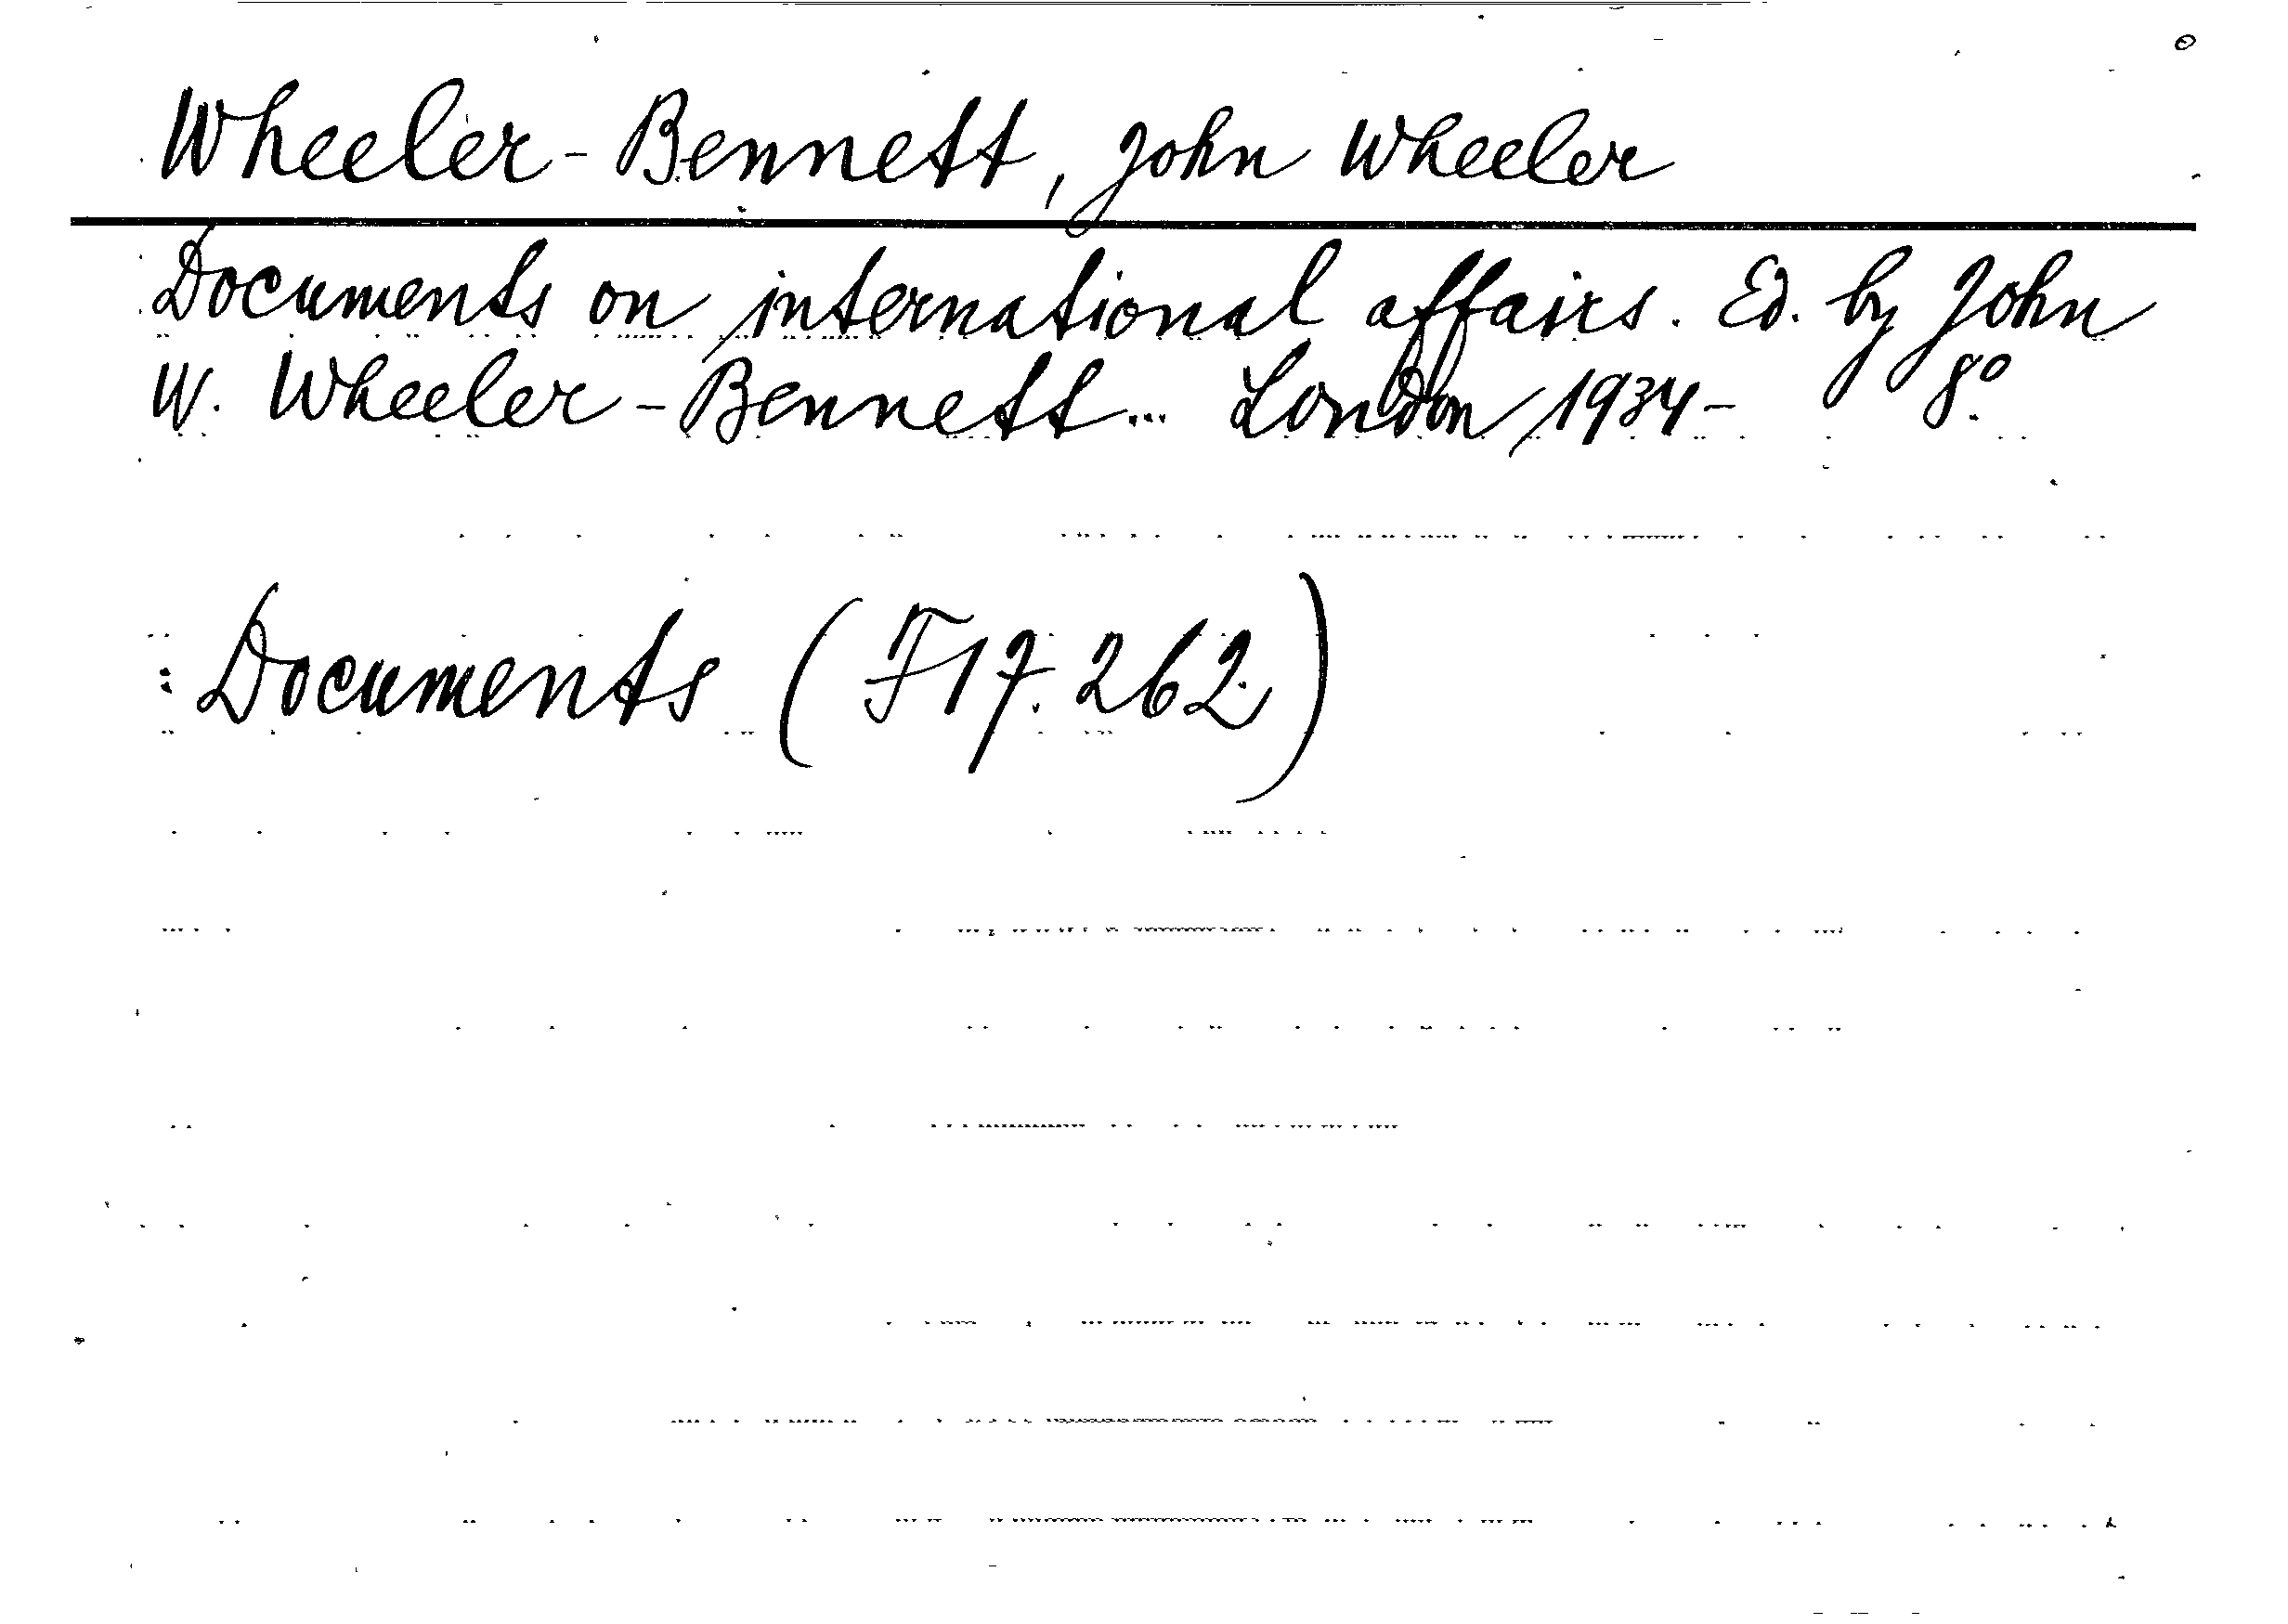 Wheeler-Bennett, John Wheeler
Documents on international affairs. Ed. by John
W. Wheeler-Bennett... London, 1934- 8°.
: Documents (F17.262.)